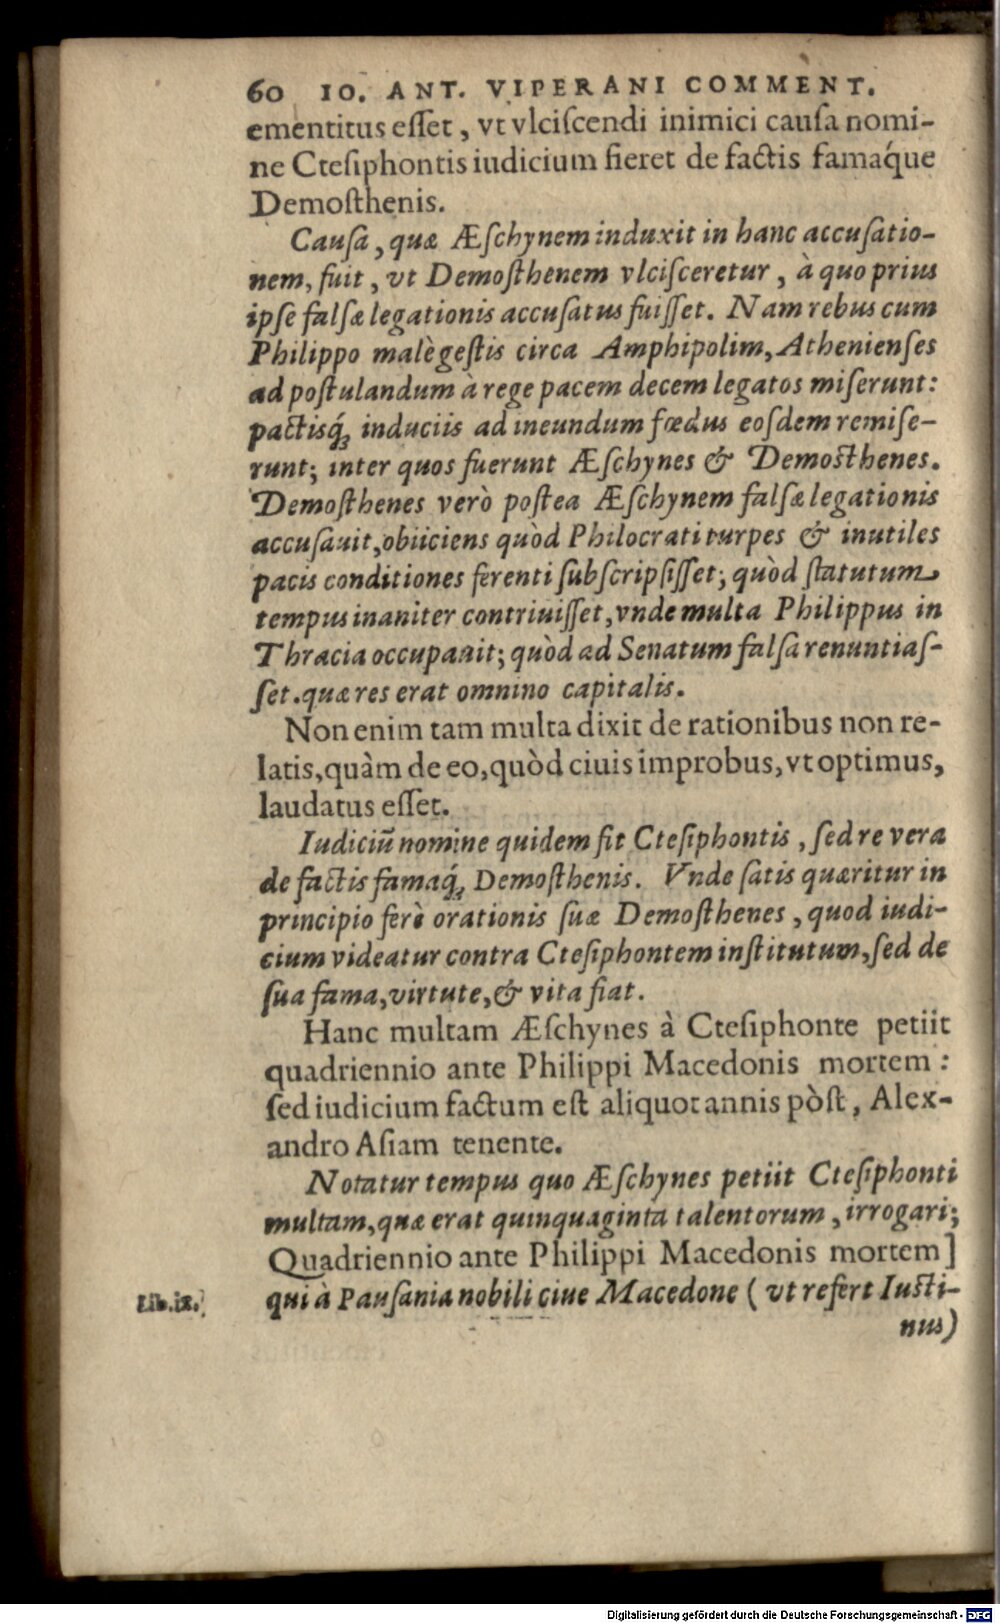 60 IO. ANT. VIPERANI COMMENT.
ementitus eſſet, vt vlciſcendi inimici cauſa nomi-
ne Cteſiphontis iudicium fieret de factis famáque
Demoſthenis.
Cauſa, quæ Æſchynem induxit in hanc accuſatio-
nem, fuit, vt Demoſthenem vlciſceretur, à quo prius
ipſe falſæ legationis accuſatus fuiſſet. Nam rebus cum
Philippo malè geſtis circa Amphipolim, Athenienſes
ad poſtulandum à rege pacem decem legatos miſerunt:
pactisq́ꝫ induciis ad ineundum fœdus eoſdem remiſe-
runt; inter quos fuerunt Æſchynes & Demoſthenes.
Demoſthenes verò poſtea Æſchynem falſæ legationis
accuſauit, obiiciens quòd Philocrati turpes & inutiles
pacis conditiones ferenti ſubſcripſiſſet; quòd ſtatutum
tempus inaniter contriuiſſet, vnde multa Philippus in
Thracia occupauit; quòd ad Senatum falſa renuntiaſ-
ſet. quæ res erat omnino capitalis.
Non enim tam multa dixit de rationibus non re-
latis, quàm de eo, quòd ciuis improbus, vt optimus,
laudatus eſſet.
Iudiciū nomine quidem fit Cteſiphontis, ſed re vera
de factis famaq́ꝫ Demoſthenis. Vnde ſatis quæritur in
principio ferè orationis ſuæ Demoſthenes, quod iudi-
cium videatur contra Cteſiphontem inſtitutum, ſed de
ſua fama, virtute, & vita fiat.
Hanc multam Æſchynes à Cteſiphonte petiit
quadriennio ante Philippi Macedonis mortem:
ſed iudicium factum eſt aliquot annis pòſt, Alex-
andro Aſiam tenente.
Notatur tempus quo Æſchynes petiit Cteſiphonti
multam, quæ erat quinquaginta talentorum, irrogari;
Quadriennio ante Philippi Macedonis mortem]
Lib. ix. qui à Pauſania nobili ciue Macedone (vt refert Iuſti-
nus)
Digitalisierung gefördert durch die Deutsche Forschungsgemeinschaft - DFG